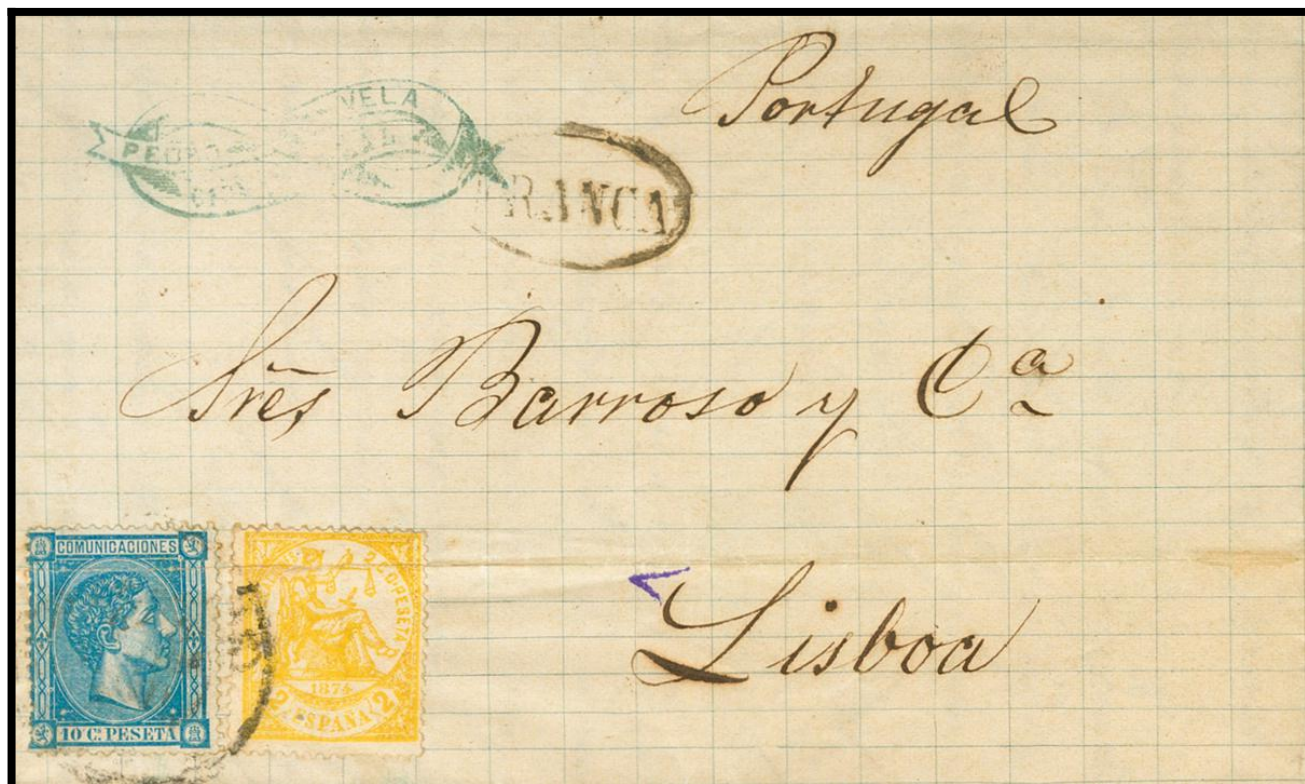 Portugal
VELA
PEDRO
FRANCA
Srẽs Barroso y Cª
Lisboa
COMUNICACIONES
10 Cs PESETA
2 C. D PESETA
1874
2 ESPAÑA 2